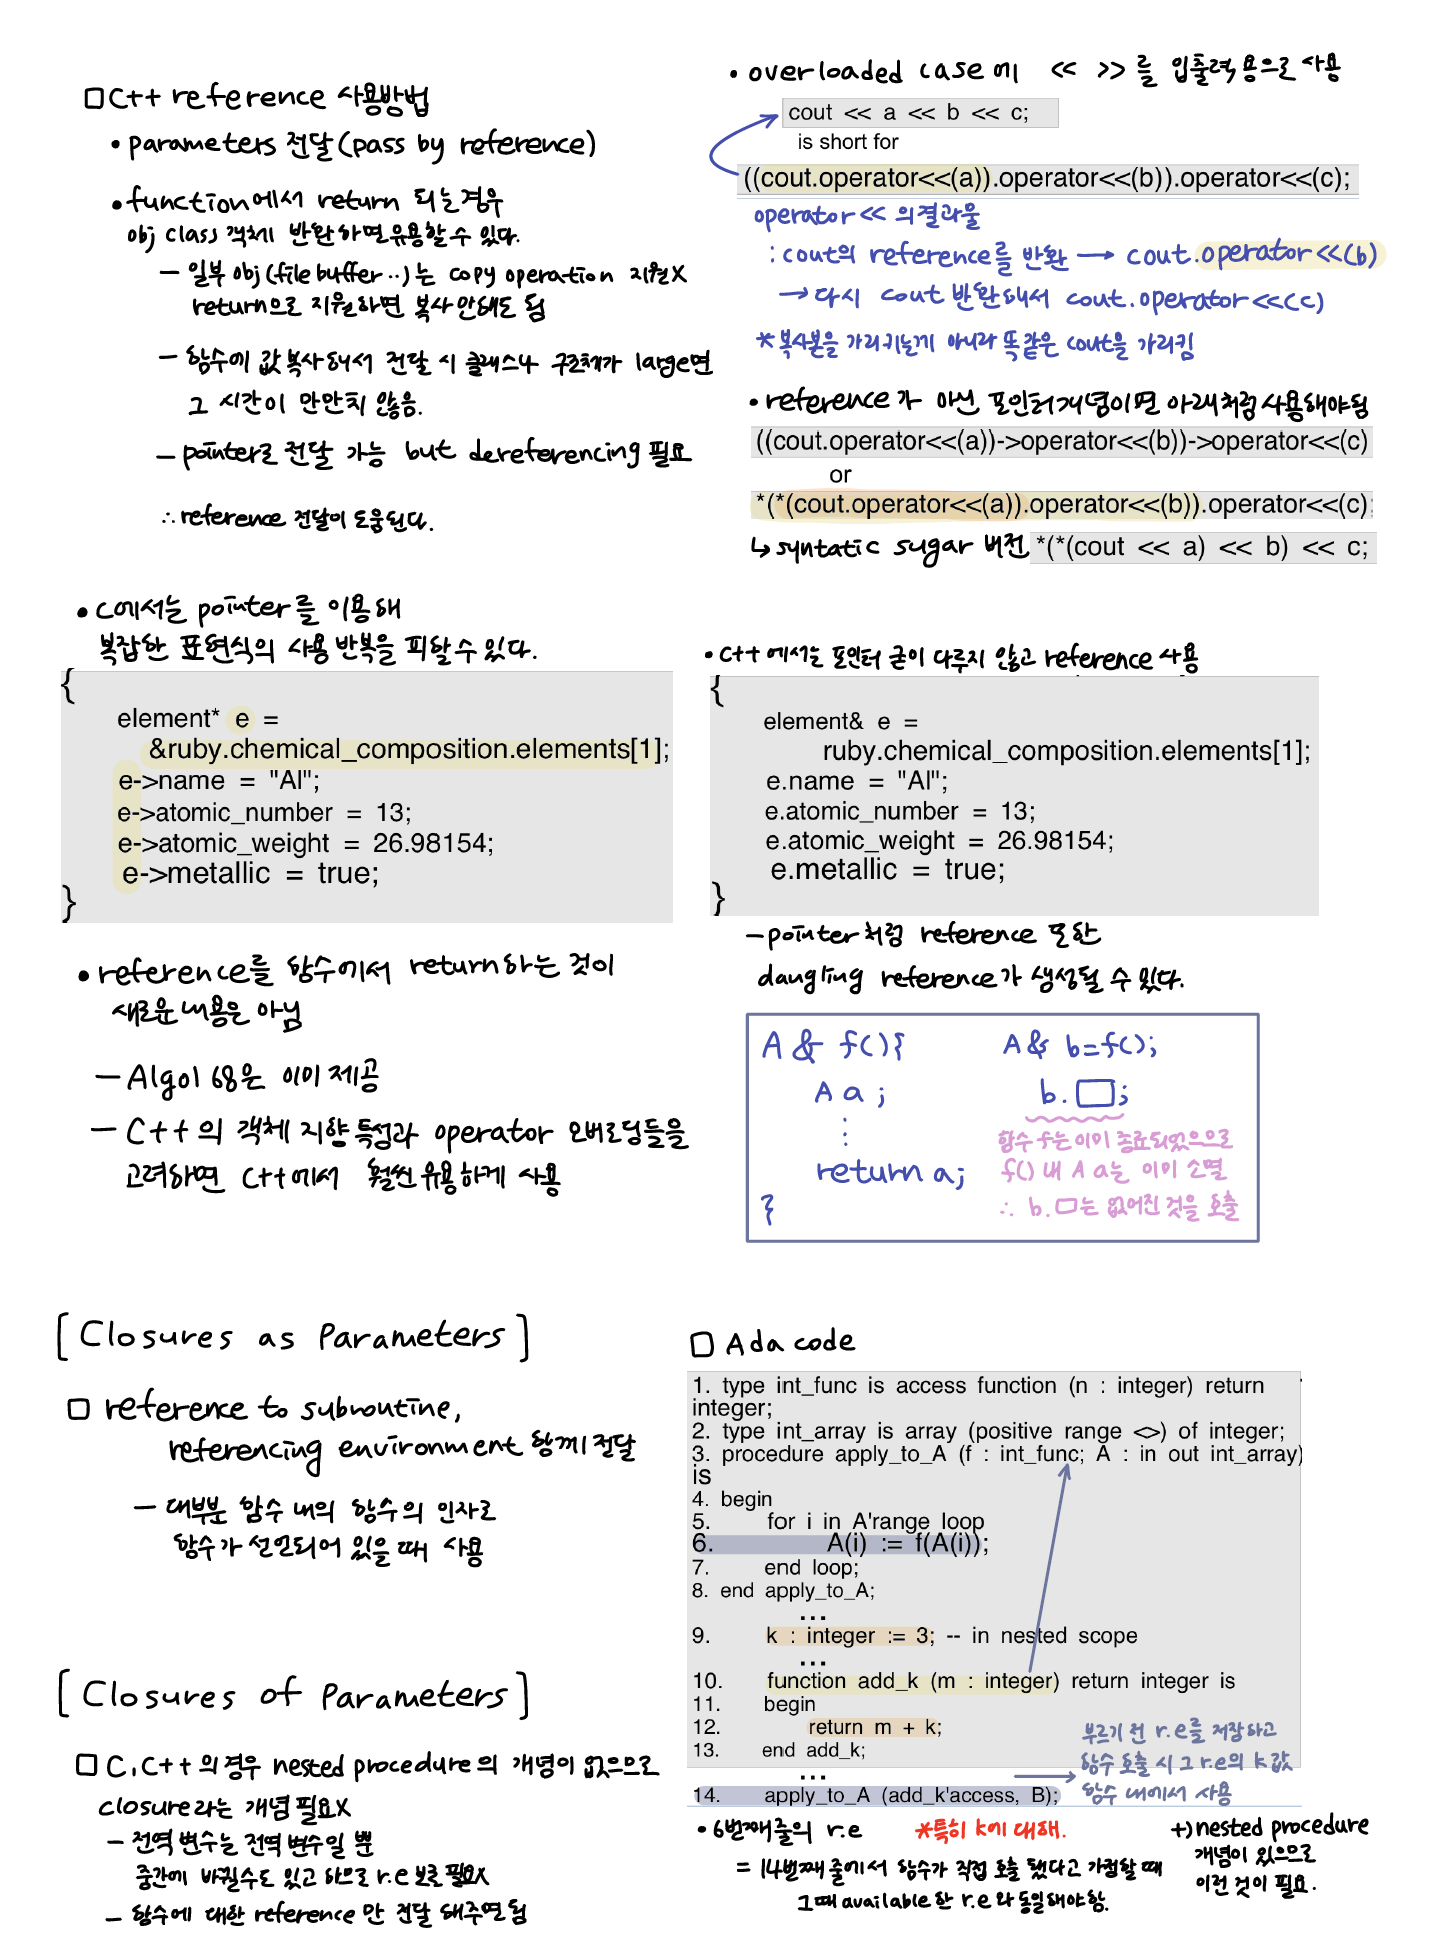 □ C++ reference 사용방법
• parameters 전달 (pass by reference)
• function에서 return 되는 경우
obj class 객체 반환하면 유용할 수 있다.
- 일부 obj(file buffer..)는 copy operation 지원X
return으로 지원하면 복사 안해도 됨
- 함수에 값 복사해서 전달 시 클래스나 구조체가 large면
그 시간이 만만치 않음.
- pointer로 전달 가능 but dereferencing 필요
∴ reference 전달이 도움된다.
• overloaded case에 << >>를 입출력용으로 사용
cout << a << b << c;
is short for
((cout.operator<<(a)).operator<<(b)).operator<<(c);
operator<< 의 결과물
: cout의 reference를 반환 → cout.operator<<(b)
→ 다시 cout 반환해서 cout.operator<<(c)
* 복사본을 가리키는게 아니라 똑같은 cout을 가리킴
• reference가 아닌 포인터개념이면 아래처럼 사용해야됨
((cout.operator<<(a))->operator<<(b))->operator<<(c)
or
*(*(cout.operator<<(a)).operator<<(b)).operator<<(c);
↳ syntatic sugar 버전 *(*(cout << a) << b) << c;
• C에서는 pointer를 이용해
복잡한 표현식의 사용 반복을 피할 수 있다.
{
element* e =
&ruby.chemical_composition.elements[1];
e->name = "Al";
e->atomic_number = 13;
e->atomic_weight = 26.98154;
e->metallic = true;
}
• C++에서는 포인터 굳이 다루지 않고 reference 사용
{
element& e =
ruby.chemical_composition.elements[1];
e.name = "Al";
e.atomic_number = 13;
e.atomic_weight = 26.98154;
e.metallic = true;
}
- pointer처럼 reference 또한
dangling reference가 생성될 수 있다.
• reference를 함수에서 return하는 것이
새로운 내용은 아님
- Algol 68은 이미 제공
- C++의 객체 지향 특성과 operator 오버로딩들을
고려하면 C++에서 훨씬 유용하게 사용
A & f(){
A a ;
⋮
return a;
}
A& b=f();
b.□;
함수 f는 이미 종료되었으므로
f() 내 A a는 이미 소멸
∴ b.□는 없어진 것을 호출
[ Closures as Parameters ]
□ reference to subroutine,
referencing environment 함께 전달
- 대부분 함수 내의 함수의 인자로
함수가 선언되어 있을 때 사용
□ Ada code
1. type int_func is access function (n : integer) return
integer;
2. type int_array is array (positive range <>) of integer;
3. procedure apply_to_A (f : int_func; A : in out int_array)
is
4. begin
5. for i in A'range loop
6. A(i) := f(A(i));
7. end loop;
8. end apply_to_A;
...
9. k : integer := 3; -- in nested scope
...
10. function add_k (m : integer) return integer is
11. begin
12. return m + k;
13. end add_k;
...
14. apply_to_A (add_k'access, B);
→ 부르기 전 r.e를 저장하고
함수 호출 시 그 r.e의 k값
함수 내에서 사용
• 6번째줄의 r.e *특히 k에 대해.
= 14번째 줄에서 함수가 직접 호출 됐다고 가정할 때
그때 available한 r.e와 동일해야함.
+) nested procedure
개념이 있으므로
이런 것이 필요.
[ Closures of Parameters ]
□ C, C++의 경우 nested procedure의 개념이 없으므로
closure라는 개념 필요X
- 전역 변수는 전역 변수일 뿐
중간에 바뀔수도 있고 하므로 r.e 보존 필요X
- 함수에 대한 reference만 전달 해주면 됨